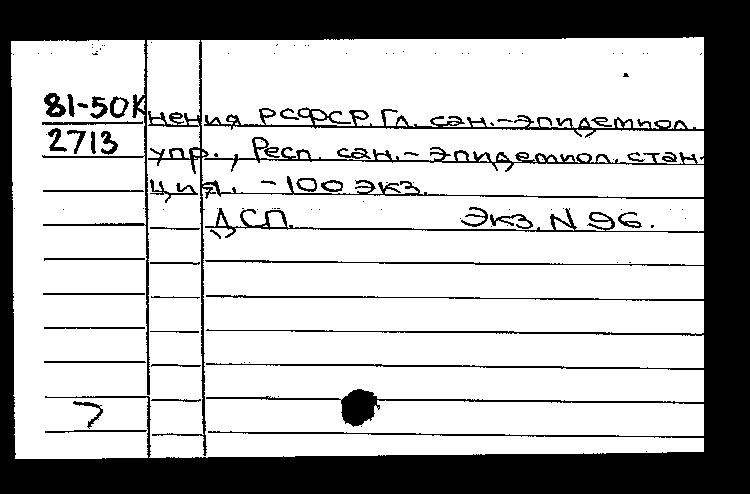 81-50К
2713
нения РСФСР. Гл. сан.-эпидемиол.
упр., Респ. сан.-эпидемиол. стан-
ция. - 100 экз.
ДСП. Экз. N 96.